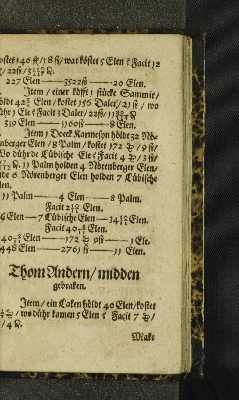 kostet 140 ℔/18 ß/ wat kostet 5 Elen? Facit 12
227 Elen — 3522ß — 20 Elen.
Item/ einer köfft 1 stücke Sammit/
holdt 42 Elen/ kostet 156 Daler/21 ß/ wo
dühr 1 Ele? Facit 3 Daler/22ß/
339 Elen — 5 — 8 Elen.
Item 1 Dock Karmesyn holdt 32 Nö-
renberger Elen/8 Palm/ kostet 172
Wo dühr de Cübische Ele? Facit 4
11 Palm holden 4 Nörenberger Elen/
unde 6 Nörenberger Elen holden 7 Cübische
Elen.
11 Palm — 4 Elen — 8 Palm.
Facit 2 Elen.
6 Elen — 7 Cübische Elen — 34 Elen.
Facit 40 Elen.
40 Elen — 172 — 1 Ele.
448 Elen — 2761 ß — 11 Elen.
Thom Andern/ midden
gebraken.
Item/ ein Laken holdt 40 Elen/ kostet
wo dühr kamen 5 Elen? Facit 7
Make